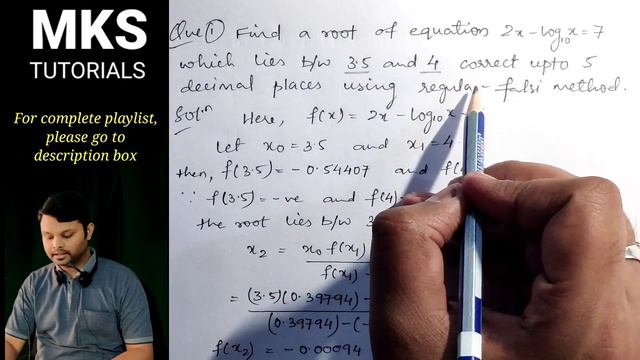 MKS
TUTORIALS
For complete playlist,
please go to
description box
Que ① Find a root of equation 2x - log₁₀x = 7
which lies b/w 3.5 and 4 correct upto 5
decimal places using regula - falsi method.
Solⁿ Here, f(x) = 2x - log₁₀x -
Let x₀ = 3.5 and x₁ = 4
then, f(3.5) = -0.54407 and f(4
∵ f(3.5) = -ve and f(4) =
the root lies b/w 3
x₂ = x₀ f(x₁)
f(x₁) -
= (3.5)(0.39794) -
(0.39794) - (-
f(x₂) = -0.00094